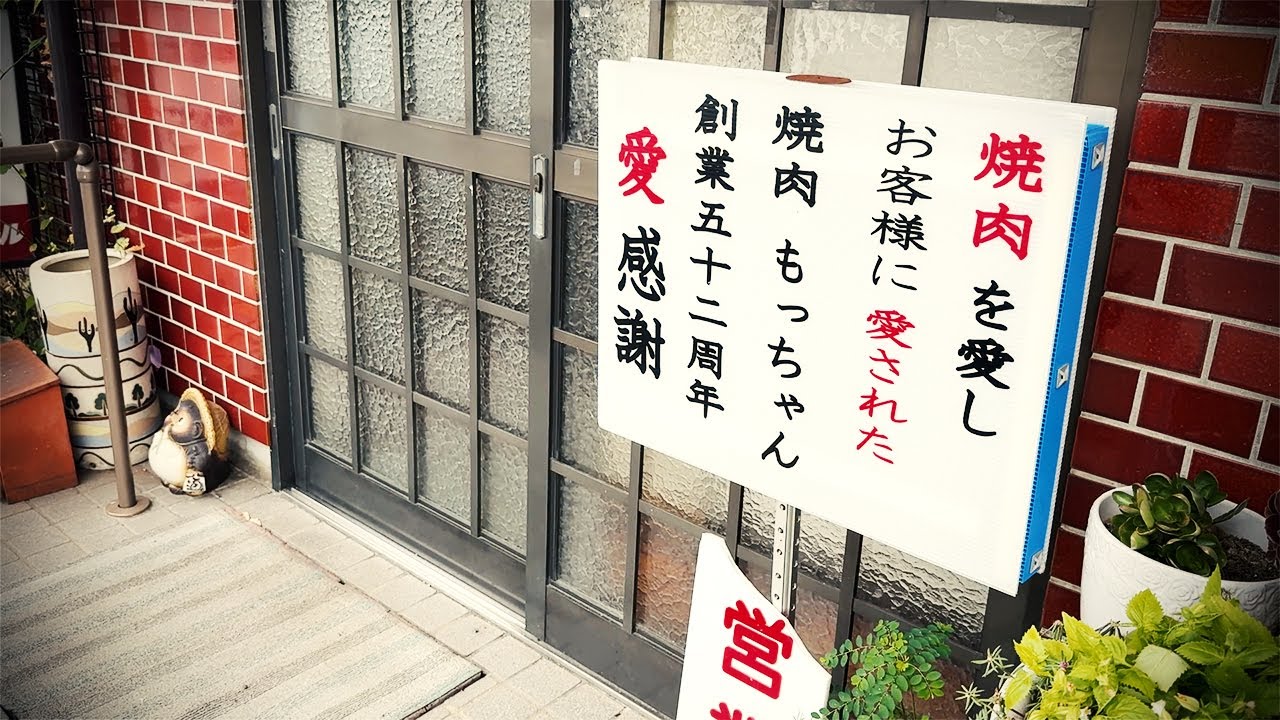 焼肉を愛し
お客様に愛された
焼肉 もっちゃん
創業五十二周年
愛感謝
営
ル